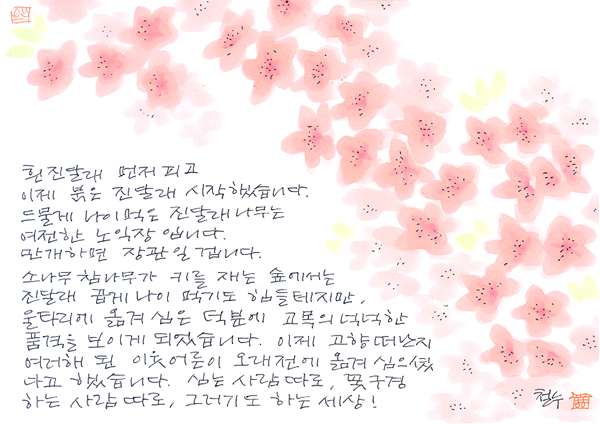 흰 진달래 먼저 피고
이제 붉은 진달래 시작했습니다.
드물게 나이먹은 진달래 나무는
여전한 노익장입니다.
만개하면 장관일겁니다.
소나무 참나무가 키를 재는 숲에서는
진달래 곱게 나이 먹기도 힘들테지만,
울타리에 옮겨 심은 덕분에 고목의 넉넉한
품격을 보이게 되었습니다. 이제 고향 떠난지
여러해 된 이웃어른이 오래전에 옮겨 심으셨
다고 했습니다. 심는 사람 따로, 꽃구경
하는 사람 따로, 그러기도 하는 세상!
철수